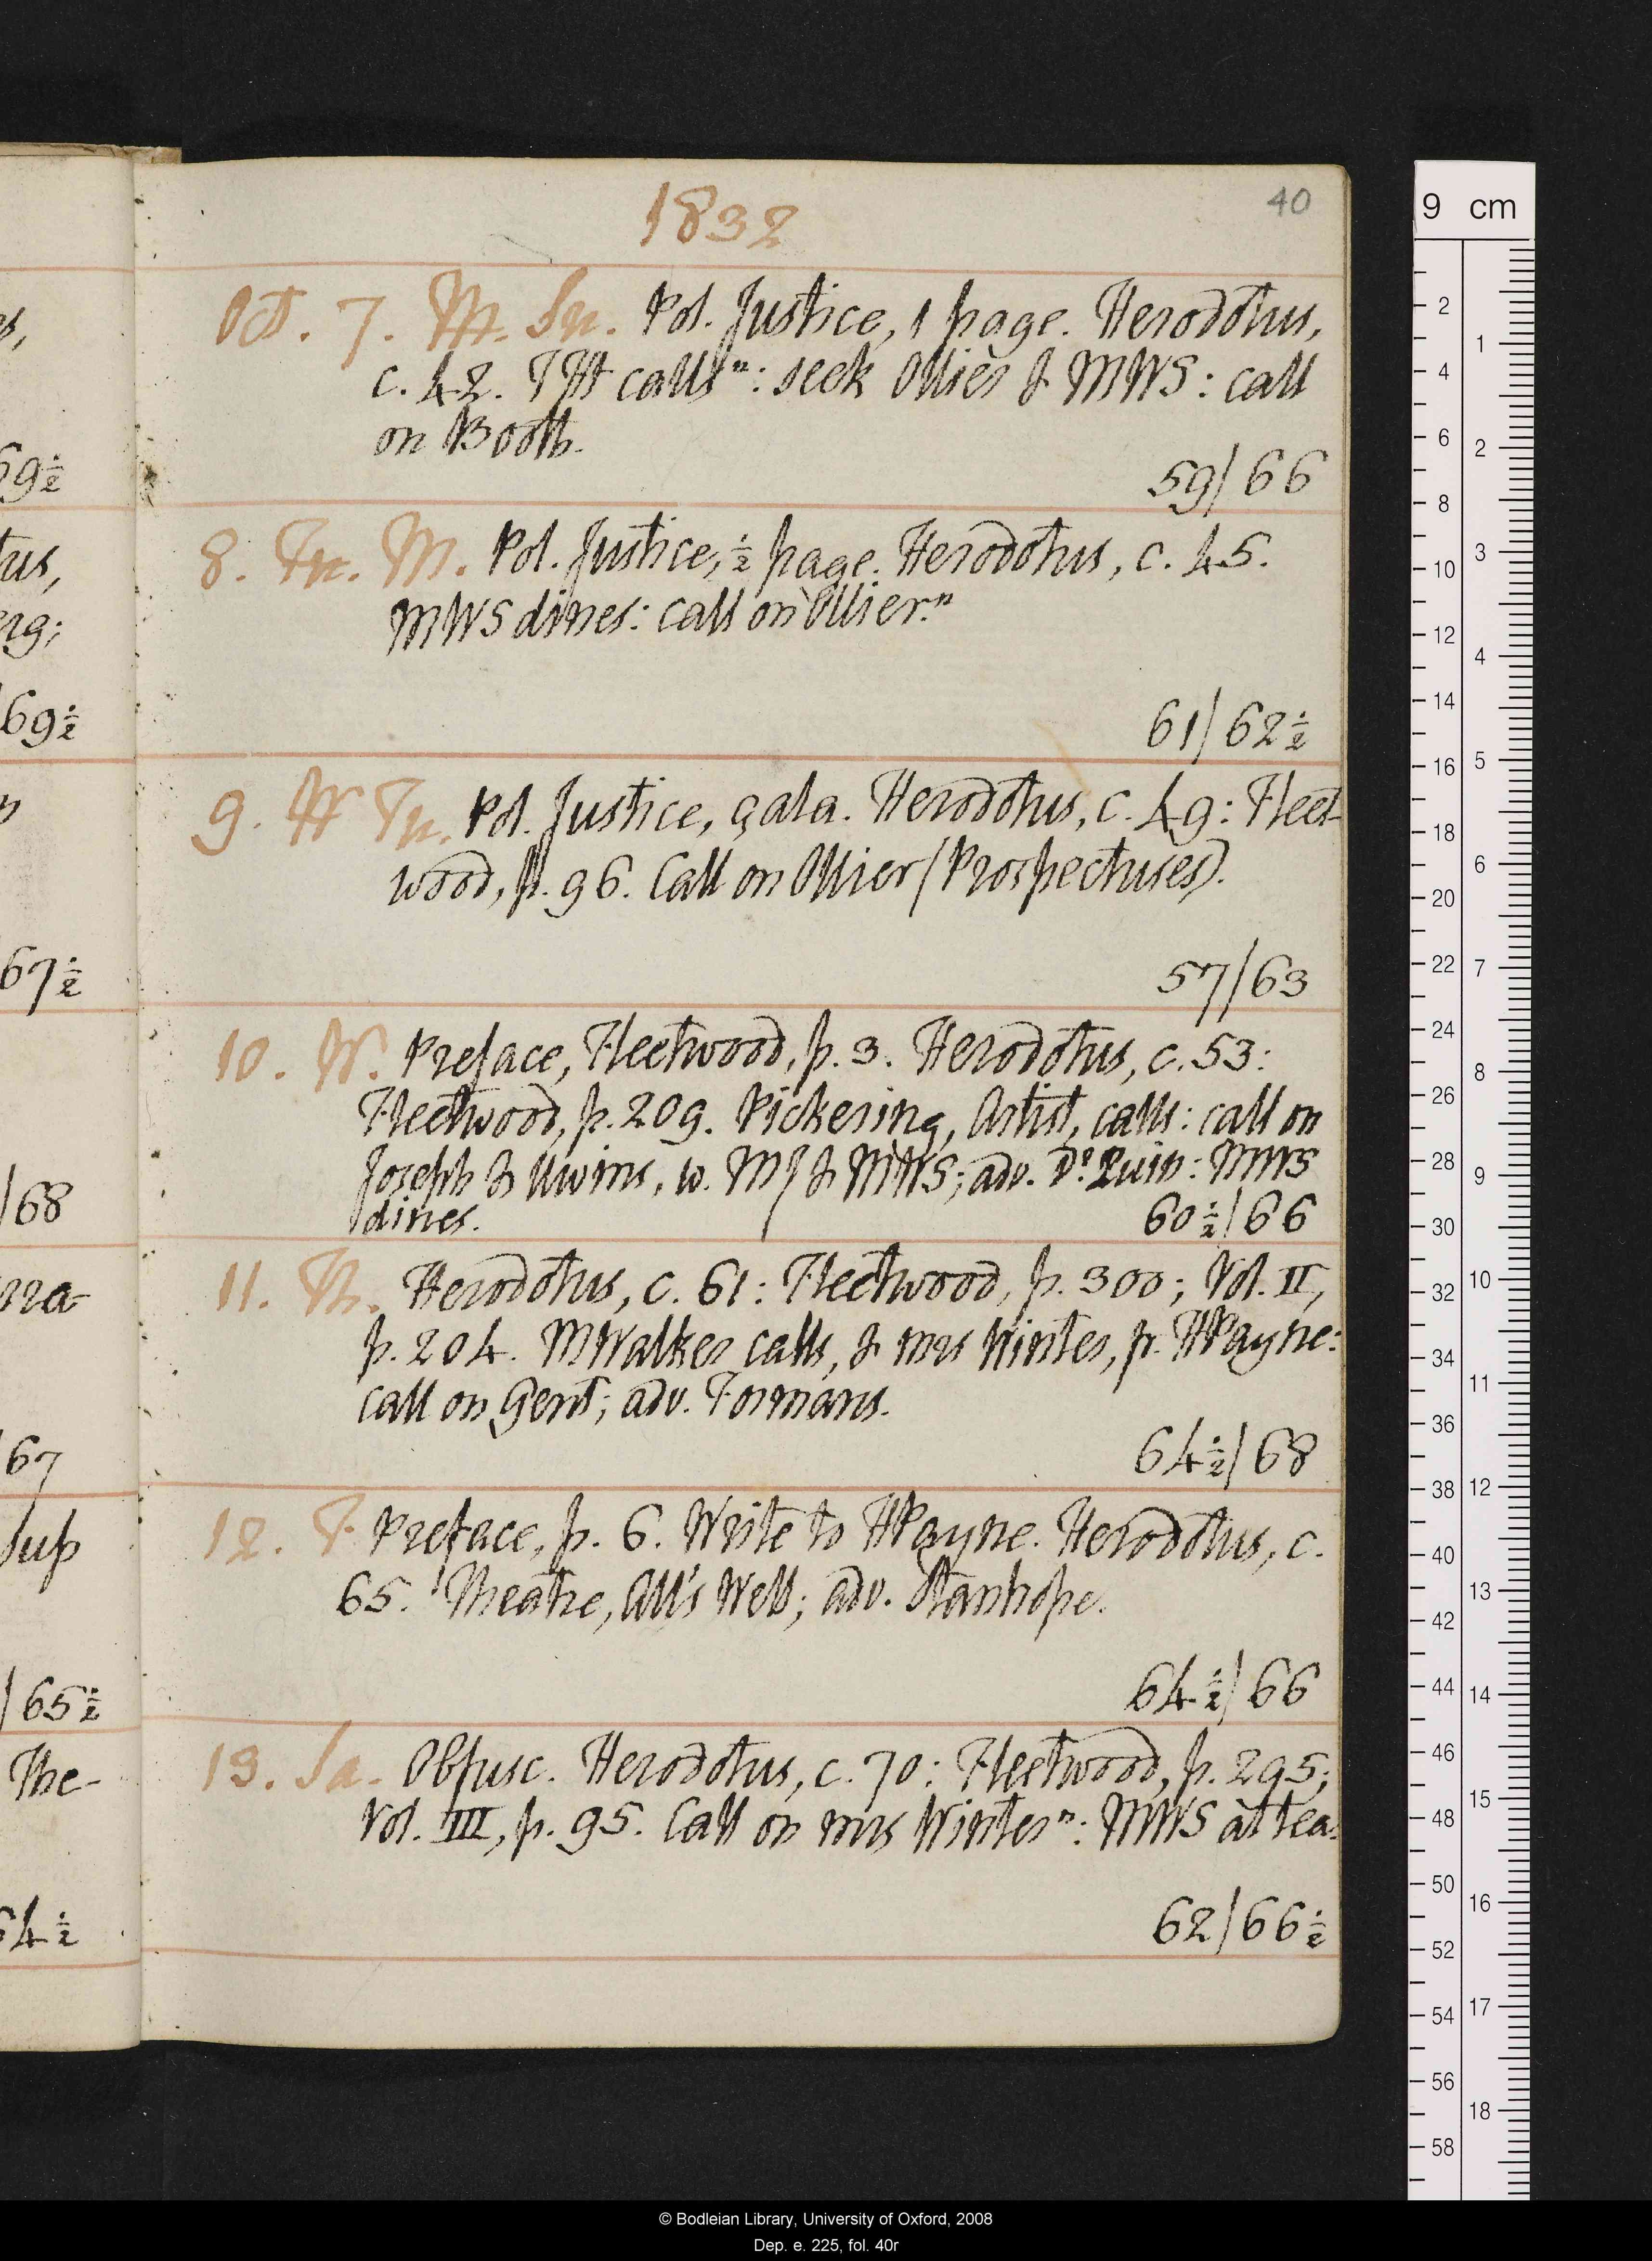 1832
40
Oct. 7. Su. Pol. Justice, 1 page. Herodotus,
c. 42. calls ⁿ: seek Ollier & MWS: call
on Booth.
59/66
8. M. Pol. Justice, ½ page. Herodotus, c. 45.
MWS dines: call on Ollier.ⁿ
61/62½
9. Tu. Pol. Justice, çala. Herodotus, c. 49: Fleet-
wood, p. 96. Call on Ollier (Prospectuses).
57/63
10. W. Preface, Fleetwood, p. 3. Herodotus, c. 53:
Fleetwood, p. 209. Pickering, Artist, calls: call on
Joseph & Uwins, w. MJ & MWS; adv. Dr Quin: MWS
dines.
60½/66
11. Th. Herodotus, c. 61: Fleetwood, p. 300; Vol. II,
p. 204. MWalker calls, & mrs Winter, p. HPayne:
call on Gent; adv. Formans.
64½/68
12. F. Preface, p. 6. Write to HPayne. Herodotus, c.
65. Theatre, All's Well; adv. Stanhope.
64½/66
13. Sa. Obfusc. Herodotus, c. 70: Fleetwood, p. 295;
Vol. III, p. 95. Call on mrs Winter ⁿ: MWS at tea.
62/66½
69½
tus,
69½
67½
/68
67
Sup
/65½
The-
64½
9 cm
2
4
6
8
10
12
14
16
18
20
22
24
26
28
30
32
34
36
38
40
42
44
46
48
50
52
54
56
58
1
2
3
4
5
6
7
8
9
10
11
12
13
14
15
16
17
18
© Bodleian Library, University of Oxford, 2008
Dep. e. 225, fol. 40r